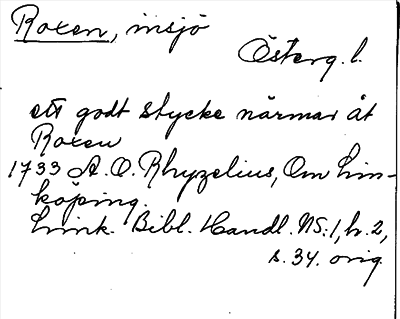 Roxen, insjö
Österg. l.
ett godt stycke närmar åt
Roxen
1733 A. O. Rhyzelius, Om Lin-
köping.
Link. Bibl. Handl. NS: 1, h. 2,
s. 34. orig.